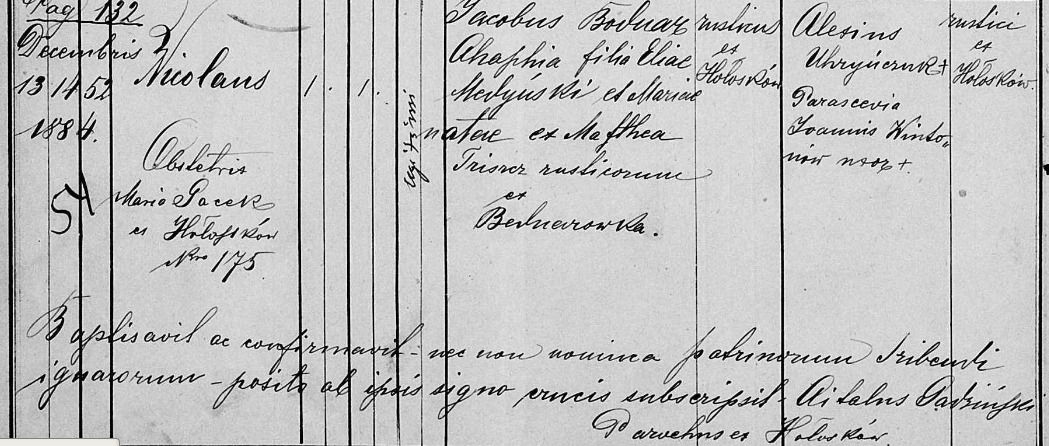 Pag 132
Decembris
13 14 52
1884.
54
Nicolaus
1. 1.
Obstetrix
Maria Pacek
ex Hołosków
Nro 175
legitimi
Jacobus Bodnar
Ahaphia filia Eliae
Medyński et Mariae
natae ex Matthea
rusticorum
ex
Bednarowka.
rusticus
ex
Hołosków
Alesius
Uhryńczuk +
Parascevia
Joannis Winto„
nów uxor +.
rustici
ex
Hołosków.
Baptisavit ac confirmavit - nec non nomina patrinorum scribendi
ignarorum - posito ab ipsis signo crucis subscripsit - Aitalus
Parochus ex Hołosków.